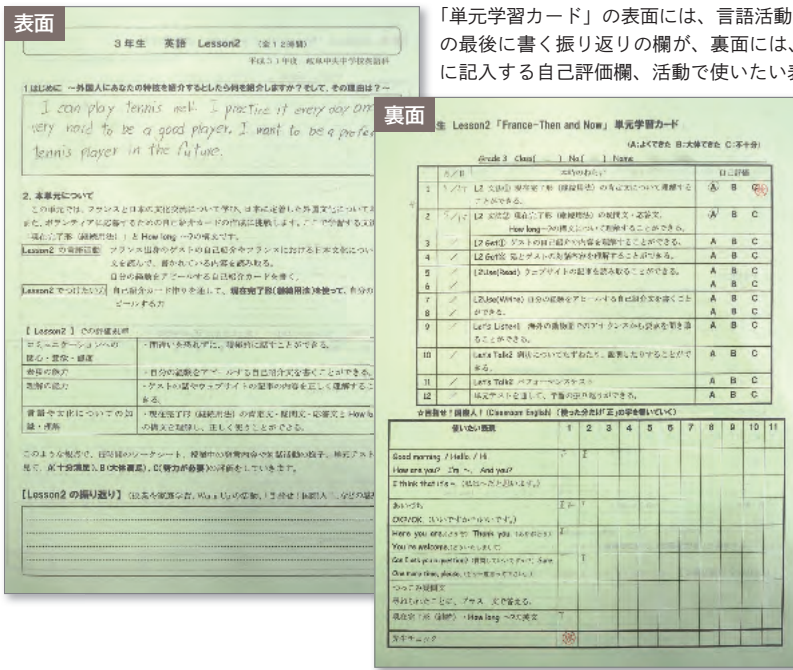 表面
「単元学習カード」の表面には、言語活動
の最後に書く振り返りの欄が、裏面には、
に記入する自己評価欄、活動で使いたい表
3年生 英語 Lesson2 (全12時間)
平成31年度 岐阜中央中学校英語科
1 はじめに ～外国人にあなたの特技を紹介するとしたら何を紹介しますか？そして、その理由は？～
I can play tennis well. I practice it every day and
very hard to be a good player. I want to be a
tennis player in the future.
2. 本単元について
この単元では、フランスと日本の文化交流について学び、日本に定着した外国文化について
現在完了形（継続用法）」と How long ～?の構文です。
Lesson2 の言語活動 フランス出身のゲストの自己紹介やフランスにおける日本文化につい
文を読んで、書かれている内容を読み取る。
自分の経験をアピールする自己紹介カードを書く。
Lesson2 でつけたい力 自己紹介カード作りを通して、現在完了形(継続用法)を使って、自分の
ピールする力
【 Lesson2 】での評価規準
コミュニケーションへの
関心・意欲・態度
・間違いを恐れずに、積極的に話すことができる。
表現の能力
・自分の経験をアピールする自己紹介文を書くことができる。
理解の能力
・ゲストの話やウェブサイトの記事の内容を正しく理解するこ
言語や文化についての知
識・理解
・現在完了形（継続用法）の肯定文・疑問文・応答文と How lo
の構文を理解し、正しく使うことができる。
見て、A(十分満足)、B(大体満足)、C(努力が必要)の評価をしていきます。
【Lesson2 の振り返り】
裏面
生 Lesson2「France-Then and Now」単元学習カード
(A:よくできた B:大体できた C:不十分)
Grade 3 Class( ) No( ) Name
本時のねらい 自己評価
1 L2 文法① 現在完了形（継続用法）の肯定文について理解する A B C
ことができる。
2 L2 文法② 現在完了形（継続用法）の疑問文・応答文、 A B C
How long ～?の構文について理解することができる。
3 L2 Get① ゲストの自己紹介の内容を理解することができる。 A B C
4 L2 Get② 苑とゲストの対話の内容を理解することができる。 A B C
5 L2Use(Read) ウェブサイトの記事を読み取ることができる。 A B C
6
7 L2Use(Write) 自分の経験をアピールする自己紹介文を書くこと A B C
8 ができる。 A B C
9 Let's Listen1 海外の動物園でのアナウンスから要点を聞き取 A B C
ることができる。
10 Let's Talk2 病状についてたずねたり、説明したりすることがで A B C
きる。
11 Let's Talk2 パフォーマンステスト A B C
12 単元テストを通して、学習の振り返りができる。 A B C
☆目指せ！国際人！(Classroom English) (使った分だけ「正」の字を書いていく)
使いたい表現 1 2 3 4 5 6 7 8 9 10 11
Good morning / Hello. / Hi
How are you? I'm ～. And you?
I think that it's ～.（私は～だと思います。）
あいづち
OK?/OK.（いいですか?いいです。）
Here you are. Thank you.
You're welcome.
Can I ask you a question? Sure
One more time, please.
つっこみ疑問文
尋ねられたことに、プラス一文で答える。
現在完了形（継続）・How long ～?の英文